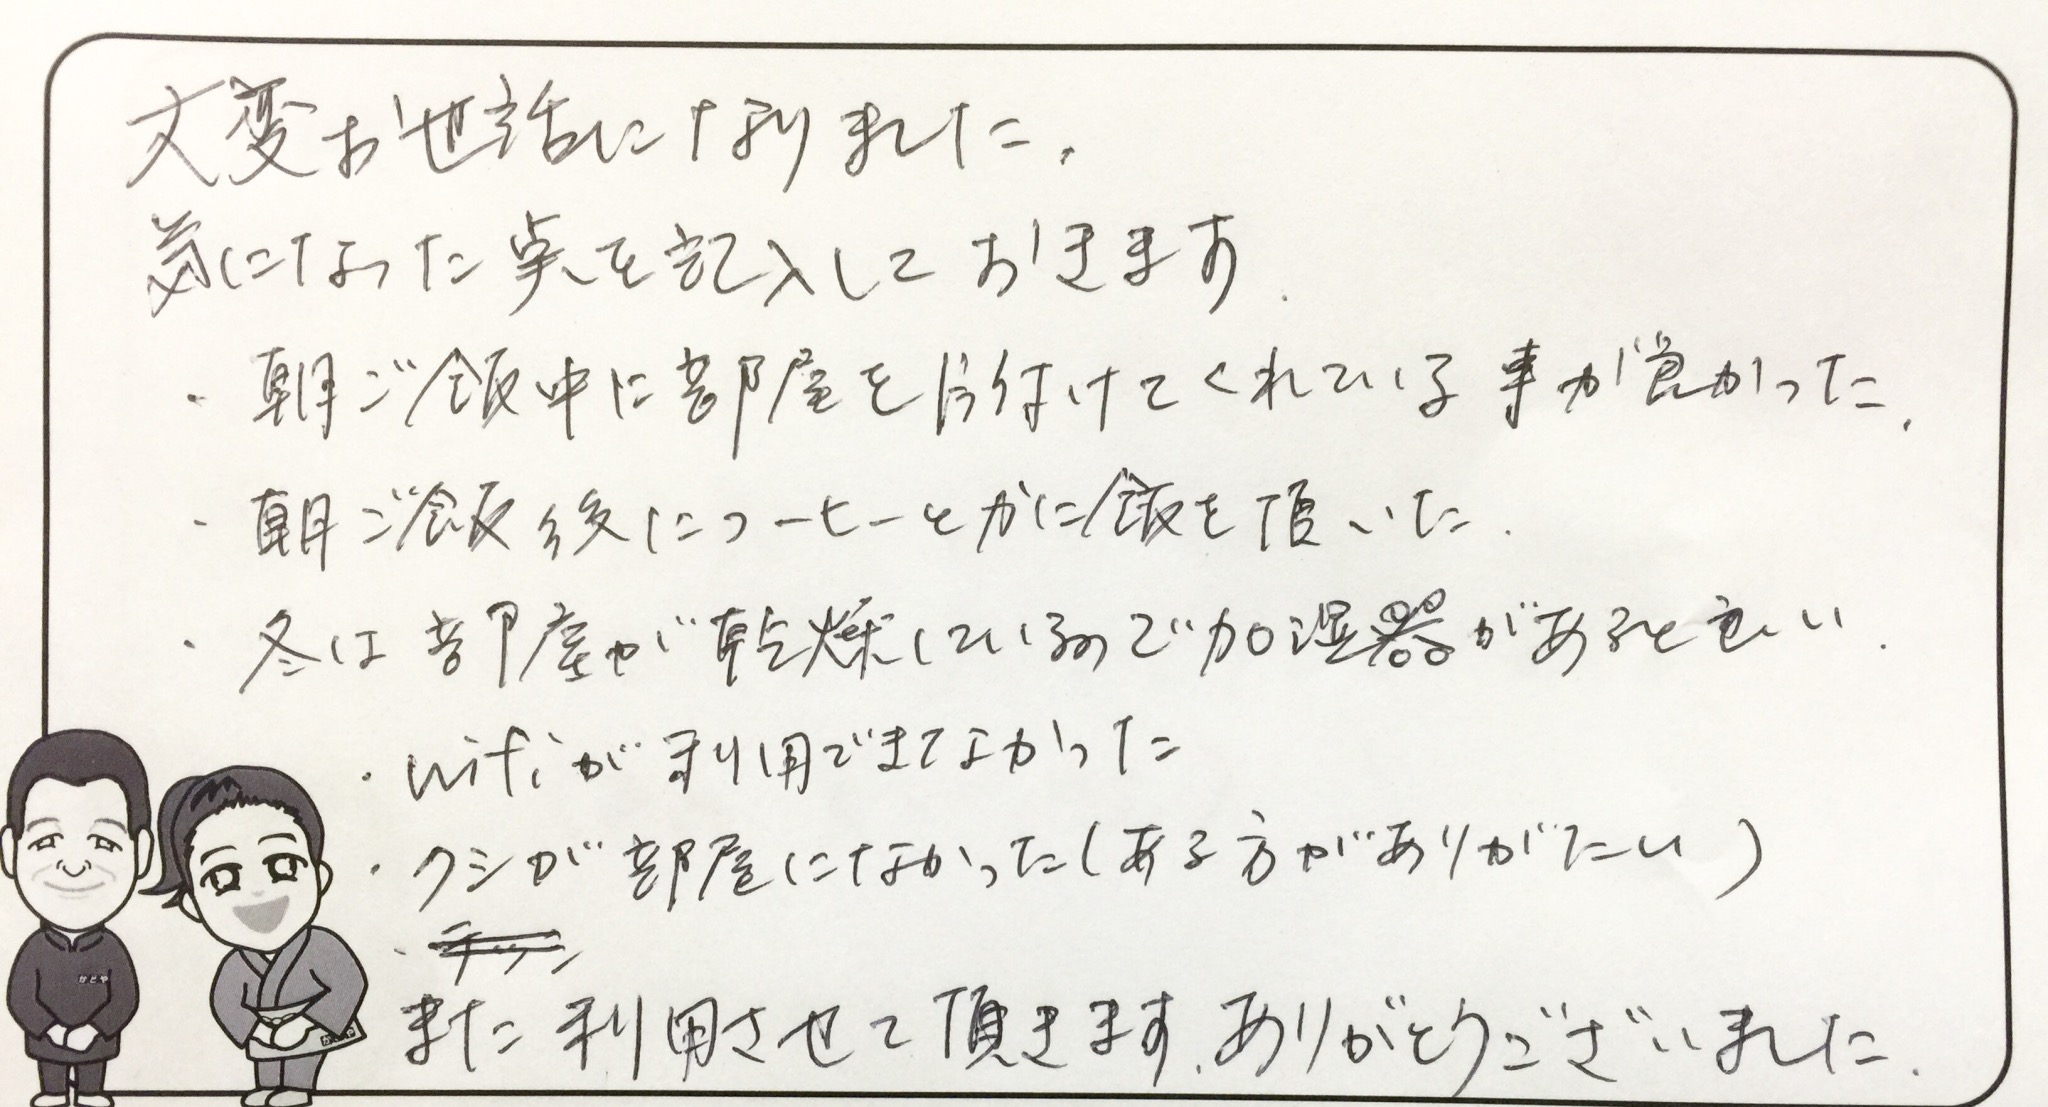 大変お世話になりました。
気になった点を記入しておきます.
・朝ご飯中に部屋を片付けてくれている事が良かった.
・朝ご飯後にコーヒーとかに飯を頂いた.
・冬は部屋が乾燥しているので加湿器があると良い.
・wifiが利用できてなかった
・クシが部屋になかった(ある方がありがたい)
・
また利用させて頂きます.ありがとうございました.
かどや